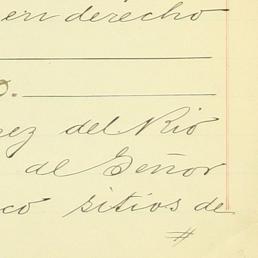 en derecho
O.
ez del Rio
al Señor
co sitios de
#